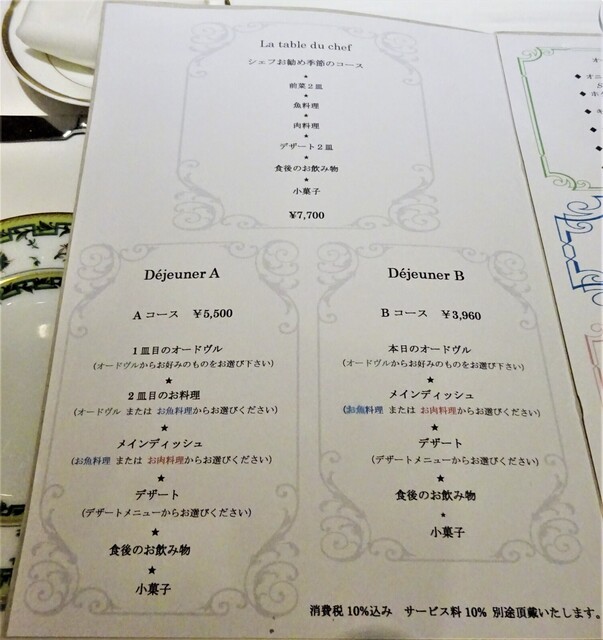 La table du chef
シェフお勧め季節のコース
★
前菜2皿
★
魚料理
★
肉料理
★
デザート2皿
★
食後のお飲み物
★
小菓子
¥7,700
Déjeuner A
Aコース ¥5,500
1皿目のオードヴル
(オードヴルからお好みのものをお選び下さい)
★
2皿目のお料理
(オードヴル または お魚料理からお選びください)
★
メインディッシュ
(お魚料理 または お肉料理からお選びください)
★
デザート
(デザートメニューからお選びください)
★
食後のお飲み物
★
小菓子
Déjeuner B
Bコース ¥3,960
本日のオードヴル
(オードヴルからお好みのものをお選び下さい)
★
メインディッシュ
(お魚料理 または お肉料理からお選びください)
★
デザート
(デザートメニューからお選びください)
★
食後のお飲み物
★
小菓子
消費税10%込み サービス料10% 別途頂戴いたします。
オー
◆ オニ
◆ ホ
◆
◆
◆